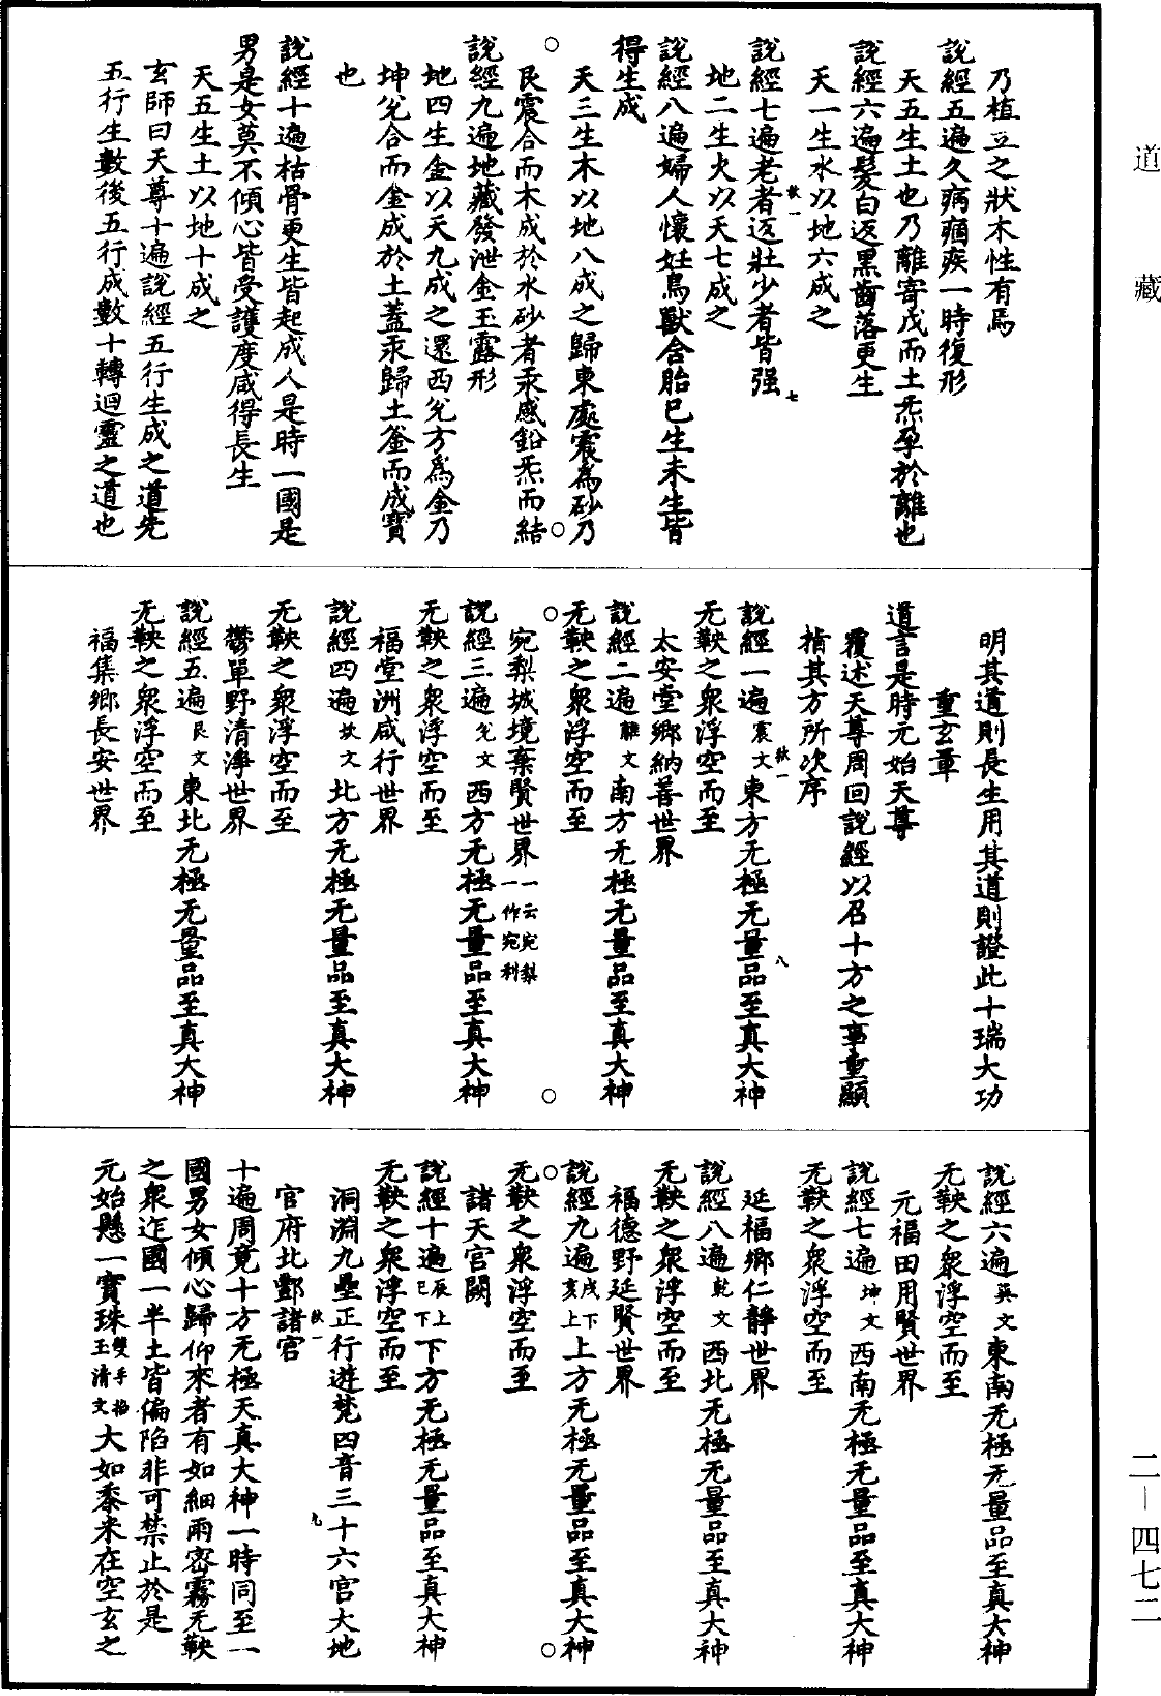 道藏
乃植立之狀木性有焉
說經五遍久病痼疾一時復形
天五生土也乃離寄戊而土炁孕於離也
說經六遍髮白返黑齒落更生
天一生水以地六成之
說經七遍老者返壯少者皆强
地二生火以天七成之
說經八遍婦人懷妊鳥獸含胎已生未生皆
得生成
天三生木以地八成之歸東處震為砂乃
艮震合而木成於水砂者汞感鉛炁而結
說經九遍地藏發泄金玉露形
地四生金以天九成之還西兌方爲金乃
坤兌合而金成於土蓋汞歸土釜而成寶
也
說經十遍枯骨更生皆起成人是時一國是
男是女莫不傾心皆受護度咸得長生
天五生土以地十成之
玄師曰天尊十遍說經五行生成之道先
五行生數後五行成數十轉迴靈之道也
明其道則長生用其道則證此十瑞大功
重玄章
道言是時元始天尊
覆述天尊周回說經以召十方之事重顯
指其方所次序
說經一遍震文東方无極无量品至真大神
无鞅之衆浮空而至
太安堂鄉納善世界
說經二遍離文南方无極无量品至真大神
无鞅之衆浮空而至
宛梨城境棄賢世界一云宛梨一作宛利
說經三遍兌文西方无極无量品至真大神
无鞅之衆浮空而至
福堂洲咸行世界
說經四遍坎文北方无極无量品至真大神
无鞅之衆浮空而至
鬱單野清淨世界
說經五遍艮文東北无極无量品至真大神
无鞅之衆浮空而至
福集鄉長安世界
說經六遍巽文東南无極无量品至真大神
无鞅之衆浮空而至
元福田用賢世界
說經七遍坤文西南无極无量品至真大神
无鞅之衆浮空而至
延福鄉仁靜世界
說經八遍乾文西北无極无量品至真大神
无鞅之衆浮空而至
福德野延賢世界
說經九遍戌下亥上上方无極无量品至真大神
无鞅之衆浮空而至
諸天宮闕
說經十遍辰上巳下下方无極无量品至真大神
无鞅之衆浮空而至
洞淵九壘正行遊梵四音三十六宮大地
官府北酆諸宮
十遍周竟十方无極天真大神一時同至一
國男女傾心歸仰來者有如細雨密霧无鞅
之衆迮國一半土皆偏陷非可禁止於是
元始懸一寶珠雙手掐玉清文大如黍米在空玄之
二—四七二